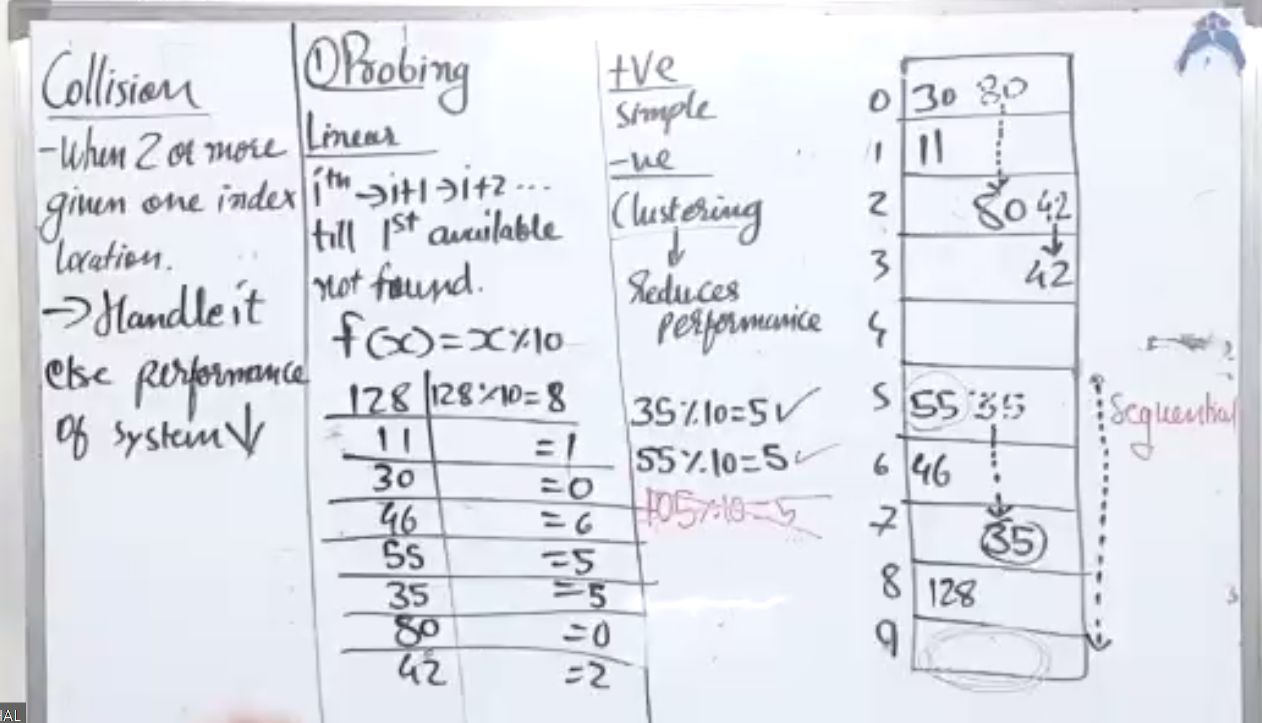 Collision
-When 2 or more
given one index
location.
→Handle it
else performance
of system↓
①Probing
Linear
iᵗʰ→i+1→i+2...
till 1ˢᵗ available
not found.
f(x)=x%10
128 128%10=8
11 =1
30 =0
46 =6
55 =5
35 =5
80 =0
42 =2
+ve
simple
-ve
Clustering
↓
Reduces
performance
35%10=5✓
55%10=5✓
105%10=5
0 30 80
1 11
2 80 42
3 42
4
5 55 35
6 46
7 35
8 128
9
Sequential
HAL